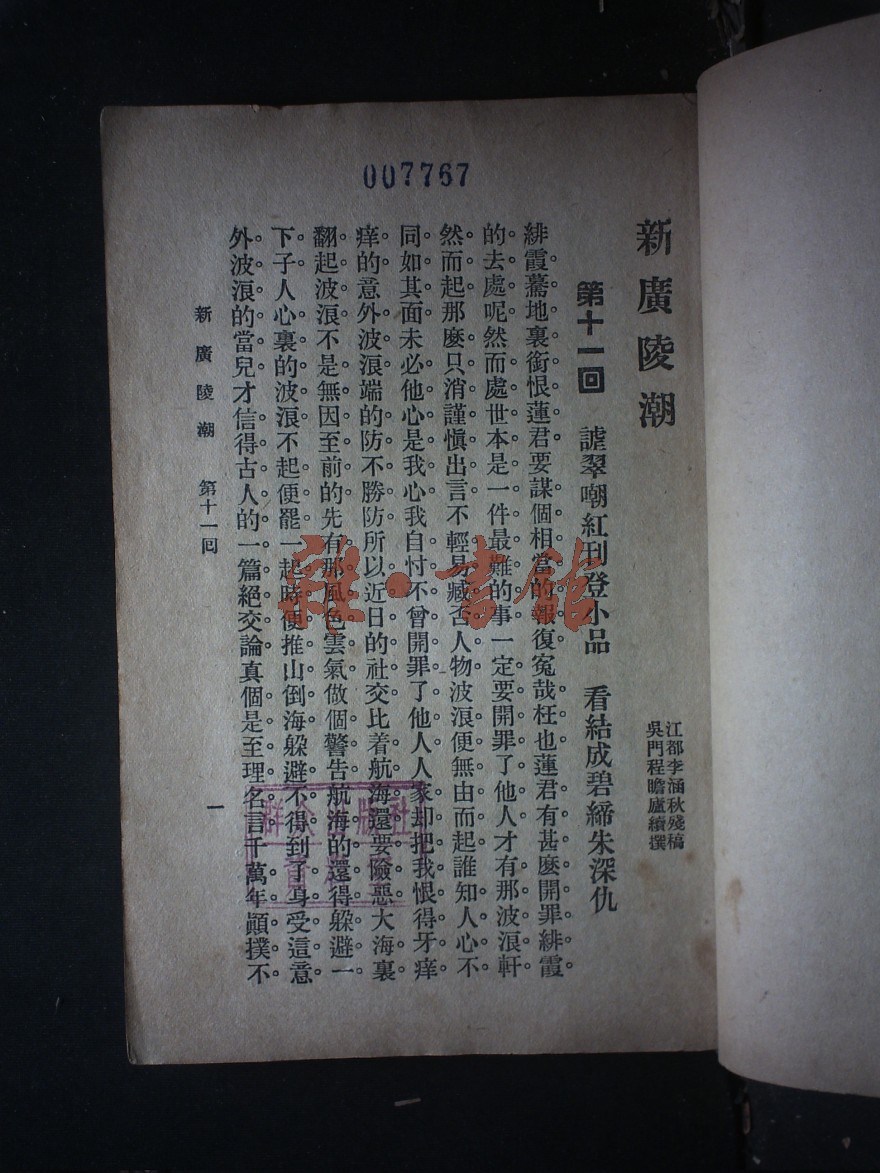 007767
新廣陵潮
江都李涵秋殘稿
吳門程瞻廬續撰
第十一回 謔翠嘲紅刊登小品 看結成碧締朱深仇
緋霞驀地裏銜恨蓮君要謀個相當的報復寃哉枉也蓮君有甚麽開罪緋霞
的去處呢然而處世本是一件最難的事一定要開罪了他人才有那波浪軒
然而起那麽只消謹愼出言不輕易臧否人物波浪便無由而起誰知人心不
同如其面未必他心是我心我自忖不曾開罪了他人人家却把我恨得牙癢
癢的意外波浪端的防不勝防所以近日的社交比着航海還要險惡大海裏
翻起波浪不是無因至前的先有那風色雲氣做個警告航海的還得躲避一
下子人心裏的波浪不起便罷一起時便推山倒海躲避不得到了身受這意
外波浪的當兒才信得古人的一篇絕交論眞個是至理名言千萬年顚撲不
新廣陵潮 第十一回
一
雜·書館
群众出版社